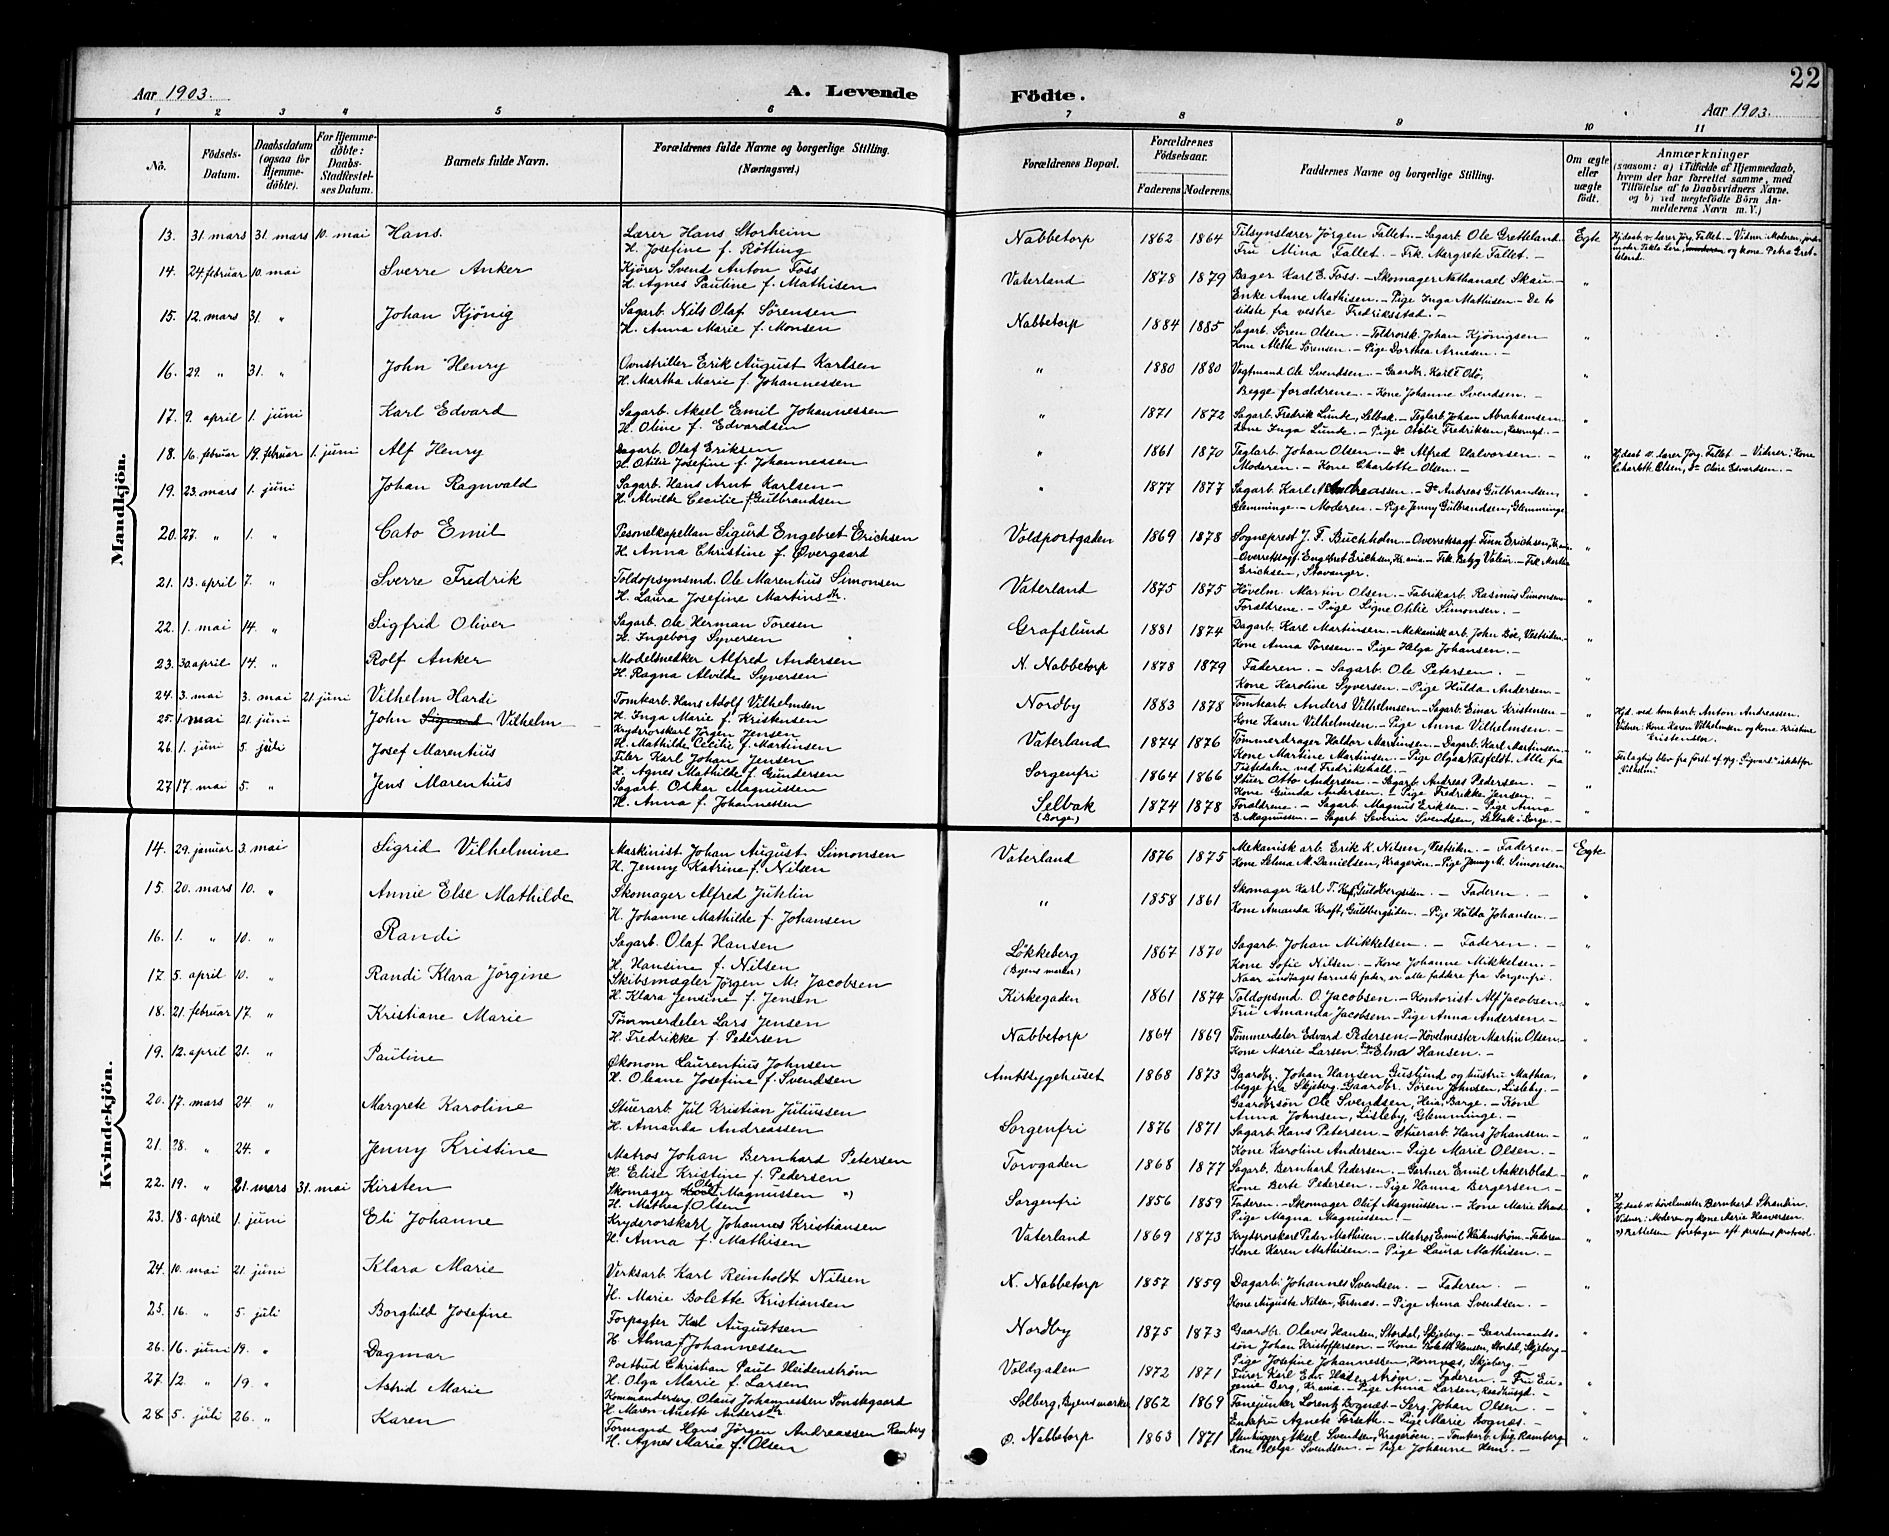 22
Aar 1903.
A. Levende Födte.
Aar 1903.
1 2 3 4 5 6 7 8 9 10 11
No.
Födsels-Datum.
Daabsdatum (ogsaa for Hjemme-döbte).
For Hjemme-döbte: Daabs-Stadfæstel-ses Datum.
Barnets fulde Navn.
Forældrenes fulde Navne og borgerlige Stilling. (Næringsvei.)
Forældrenes Bopæl.
Forældrenes Födselsaar.
Faderens Moderens
Faddernes Navne og borgerlige Stilling.
Om ægte eller uægte födt.
Anmærkninger
(saasom: a) i Tilfælde af Hjemmedaab, hvem der har forrettet samme, med Tilföielse af to Daabsvidners Navne, og b) ved uægtefödte Börn An-melderens Navn m. V.)
Mandkjön.
13. 31. mars 31. mars 10. mai Hans. Lærer Hans Storheim Nabbetorp 1862 1864 Tilsynslærer Jörgen Fallet. – Sagarb. Ole Gretteland. Egte
H. Josefine f. Rötting Fru Mina Fallet. – Frk. Margrete Fallet. –
14. 24. februar 10. mai Sverre Anker Kjörer Svend Anton Foss Vaterland 1878 1879 Bager Karl E. Foss. – Skomager Nathanael Skau. – "
H. Agnes Pauline f. Mathisen Enke Anne Mathisen. – Pige Inga Mathisen. – De to
sidste fra vestre Fredriksstad. –
15. 12. mars 31. " Johan Kjönig Sagarb. Nils Olaf Sörensen Nabbetorp 1884 1885 Sagarb. Sören Olsen. – Toldrorsk. Johan Kjönigsen "
H. Anna Marie f. Monsen Kone Mette Sörensen. – Pige Dorthea Arnesen. –
16. 29. " 31. " John Henry Ovnstriller Erik August Karlsen " 1880 1880 Vagtmand Ole Svendsen. – Gaardbr. Karl "
H. Martha Marie f. Johannessen Begge forældrene. – Kone Johanne Svendsen. –
17. 9. april 1. juni Karl Edvard Sagarb. Aksel Emil Johannessen " 1871 1872 Sagarb. Fredrik Lunde, Selbak. – Teglarb. Johan Abrahamsen. "
H. Oline f. Edvardsen Kone Inga Lunde. – Pige Otilie Fredriksen,
18. 16. februar 19. februar 1. juni Alf Henry Dagarb. Olaf Eriksen " 1861 1870 Teglarb. Johan Olsen. – Do Alfred Halvorsen. – "
H. Otilie Josefine f. Johannessen Moderen. – Kone Charlotte Olsen. –
Hj.daab v. lærer Jörg. Fallet – Vidner: Kone
Charlotte Olsen, Do Oline Edvardsen. –
19. 23. mars 1. juni Johan Ragnvald Sagarb. Hans Arnt Karlsen – " 1877 1877 Sagarb. Karl Andreassen. – Do Andreas Gulbrandsen, "
H. Alvilde Cecilie f. Gulbrandsen Glemminge. – Moderen. – Pige Jenny Gulbrandsen, Glemminge
20. 27. " 1. " Cato Emil Pesonelkapellan Sigurd Engebret Erichsen Voldportgaden 1869 1878 Sogneprest J. F. Buchholm. – Overretssagf. Finn Erichsen, "
H. Anna Christine f. Øvergaard – Overretssagf. Engebret Erichsen, – Frk. Martha
Erichsen, Stavanger.
21. 13. april 7. " Sverre Fredrik Toldopsynsmd. Ole Marentius Simonsen Vaterland 1875 1875 Hövelm. Martin Olsen. – Fabrikarb. Rasmus Simonsen "
H. Laura Josefine Martinsdtr. Forældrene. – Pige Signe Otilie Simonsen. –
22. 1. mai 14. " Sigfrid Oliver Sagarb. Ole Herman Toresen Grafslund 1881 1874 Dagarb. Karl Martinsen. – Mekanisk arb. John Böe, Vestsiden "
H. Ingeborg Syversen Kone Anna Toresen. – Pige Helga Johansen. –
23. 30. april 14. " Rolf Anker Modelsnedker Alfred Andersen N. Nabbetorp 1878 1879 Faderen. – Sagarb. Ole Petersen. – "
H. Ragna Alvilde Syversen Kone Karoline Syversen. – Pige Hulda Andersen. –
24. 3. mai 3. mai 21 juni Vilhelm Hardi Tomtkarb. Hans Adolf Vilhelmsen Nordby 1883 1878 Tomtkarb. Anders Vilhelmsen – Sagarb. Einar Kristensen – "
H. Inga Marie f. Kristensen Kone Karen Vilhelmsen. – Pige Anna Vilhelmsen. –
Hjd. ved tomtkarb. Anton Andreassen.
Vidner: Kone Karen Vilhelmsen og kone Kristine
25. 1. mai 21. juni John Sigvard Vilhelm Krydsrorskarl Jörgen Jensen Vaterland 1874 1876 Tömmerdrager Haldor Martinsen. – Dagarb. Karl Martinsen. – "
H. Mathilde Cecilie f. Martinsen Kone Martine Martinsen. – Pige Olga Vasfeldt. Alle fra
Tistedalen ved Fredrikshald. –
Feilagtig blev fra först af opg. "Sigvard" istedetfor
"Vilhelm".
26. 1. juni 5. juli Josef Marentius Filer Karl Johan Jensen Sorgenfri 1864 1866 Stuer Otto Andersen. – Sagarb. Andreas Pedersen. – "
H. Agnes Mathilde f. Gundersen Kone Gunda Andersen. – Pige Fredrikke Jensen. –
27 17. mai 5. " Jens Marentius Sagarb. Oskar Magnussen Selbak 1874 1878 Forældrene. – Sagarb. Magnus Eriksen. – Pige Anna "
H. Anna f. Johannessen (Borge) E. Magnussen. – Sagarb. Severin Svendsen, Selbak i Borge. –
Kvindekjön.
14. 29. januar 3. mai Sigrid Vilhelmine Maskinist Johan August Simonsen Vaterland 1876 1875 Mekanisk arb. Erik K. Nilsen, Vestsiden. – Faderen. – Egte
H. Jenny Katrine f. Nilsen Kone Selma M. Danielsen, Kragerøen. – Pige Jenny M. Simonsen
15. 20. mars 10. " Annie Else Mathilde Skomager Alfred Juhlin " 1858 1861 Skomager Karl T. Kraft, Guldbergsiden. – Faderen. – "
H. Johanne Mathilde f. Johansen Kone Amanda Kraft, Guldbergsiden. – Pige Hulda Johansen. –
16. 1. " 10. " Randi Sagarb. Olaf Hansen Lökkeberg 1867 1870 Sagarb. Johan Mikkelsen. – Faderen. – "
H. Hansine f. Nilsen (Byens marker) Kone Sofie Nilsen. – Kone Johanne Mikkelsen. –
Naar undtages barnets fader, er alle faddere fra Sorgenfri.
17. 5. april 10. " Randi Klara Jörgine Skibsmægler Jörgen M. Jacobsen Kirkegaden 1861 1874 Toldopsmd. O. Jacobsen. – Kontorist Alf Jacobsen. "
H. Klara Jensine f. Jensen Fru Amanda Jacobsen. – Pige Anna Andersen. –
18. 21. februar 17. " Kristiane Marie Tömmerdeler Lars Jensen Nabbetorp 1864 1869 Tömmerdeler Edvard Pedersen. – Hövelmester Martin Olsen. "
H. Fredrikke f. Pedersen Kone Marie Larsen. – Elna Hansen. –
19. 12. april 21. " Pauline Økonom Laurentius Johnsen Amtssygehuset 1868 1873 Gaardbr. Johan Hansen Guslund og hustru Mathea, "
H. Oleane Josefine f. Svendsen begge fra Skjeberg. – Gaardbr. Sören Johnsen, Lisleby. –
Gaardbrsön Ole Svendsen, Heia, Borge. – Kone
Anna Johnsen, Lisleby, Glemminge. –
20. 17. mars 24 " Margrete Karoline Stuerarb. Jul. Kristian Juliussen Sorgenfri 1876 1871 Sagarb. Hans Petersen – Stuerarb. Hans Johansen. – "
H. Amanda Andreassen Kone Karoline Andersen. – Pige Marie Olsen. –
21. 28. " 24. " Jenny Kristine Matros Johan Bernhard Petersen Torvgaden 1868 1877 Sagarb. Bernhard Pedersen. – Gartner Emil Aakerblad. – "
H. Elise Kristine f. Pedersen Kone Berte Pedersen. – Pige Hanna Bergersen. –
22. 19. " 21. mars 31. mai Kirsten Skomager Magnussen ") Sorgenfri 1856 1859 Faderen. – Skomager Oluf Magnussen. – Kone Marie "
H. Mathea f. Olsen Pige Magna Magnussen. –
Hj.daab v. hövelmester Bernhard
Vidner: Moderen og kone Marie
") Rettelsen foretagen eft. prestens protocol.
23. 18. april 1. juni Eli Johanne Krydsrorskarl Johannes Kristiansen Vaterland 1869 1873 Krydsrorskarl Peder Mathisen. – Matros Emil – Faderen "
H. Anna f. Mathisen Kone Karen Mathisen. – Pige Laura Mathisen. –
24. 10. mai 21. juni Klara Marie Verksarb. Karl Reinholdt Nilsen N. Nabbetorp 1857 1859 Dagarb. Johannes Svendsen. – Faderen. – "
H. Marie Bolette Kristiansen Kone Augusta Nilsen, Torsnæs. – Pige Anna Svendsen. –
25. 16. " 5. juli Borghild Josefine Forpagter Karl Augustsen Nordby 1875 1873 Gaardbr. Olaves Hansen, Stordal, Skjeberg. – Gaardmands- "
H. Alma f. Johannessen sön Johan Kristoffersen. – Kone Bolette Hansen, Stordal, Skjeberg.
Pige Josefine Johannessen, Hornnæs, Skjeberg. –
26. 16. juni 19. " Dagmar Postbud Christian Paul Heidenström Voldgaden 1872 1871 Furer Karl Edv. – Faderen. – Fru Eu-
H. Olga Marie f. Larsen genie Berg, Krania. – Pige Anna Larsen,
27. 12. " 19. " Astrid Marie Kommandersg. Olaus Johannessen Sonskegaard Solberg, Byens marker 1862 1869 Fanejunker Lorentz Bognæs – Serg. Johan Olsen. – "
H. Maren Anette Andersdtr. Enkefru Agnete Torseth. – Pige Marie Bognæs. –
28. 5. juli 26. " Karen Formand Hans Jörgen Andreassen Ramberg Ø. Nabbetorp 1863 1871 Stenhugger Aksel Svendsen, Kragerøen. – Tomtkarb. Aug. Ramberg. "
H. Agnes Marie f. Olsen Kone Helga Svendsen. – Pige Johanne –